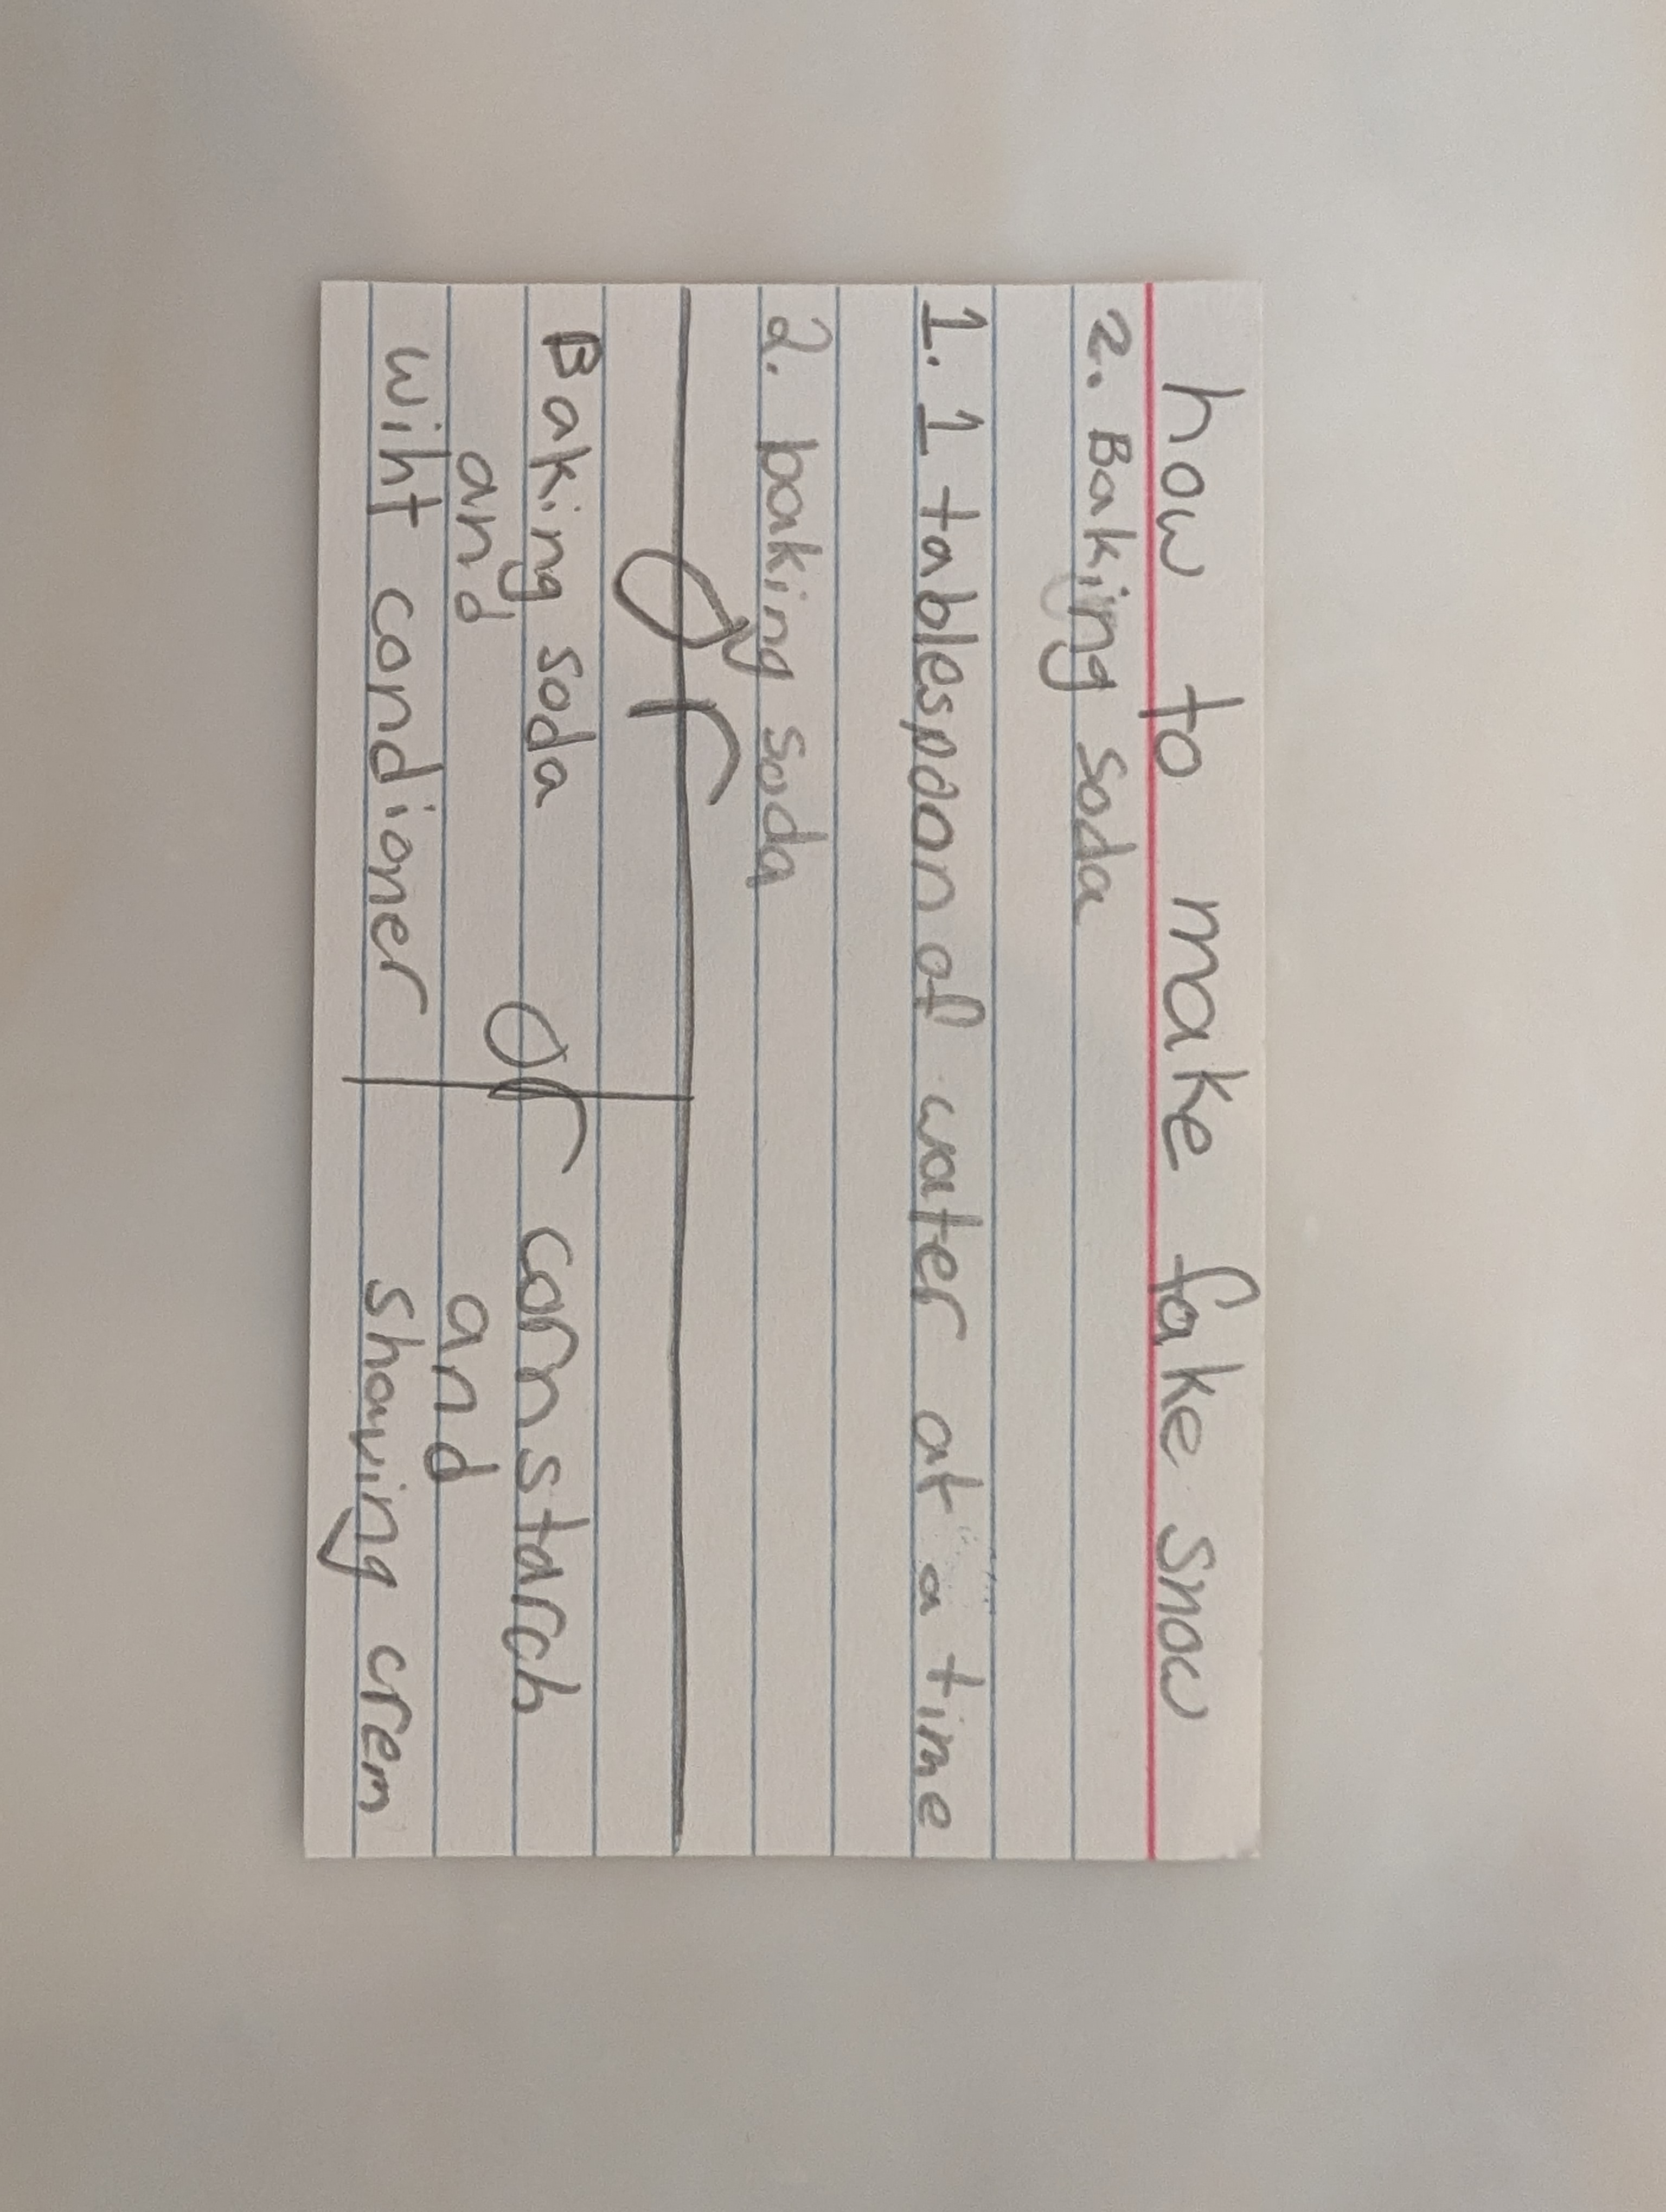 how to make fake snow
2. Baking soda
1. 1 tablespoon of water at a time
2. baking soda
Or
Baking soda
and
wiht condioner
Or
cornstarch
and
shaving crem